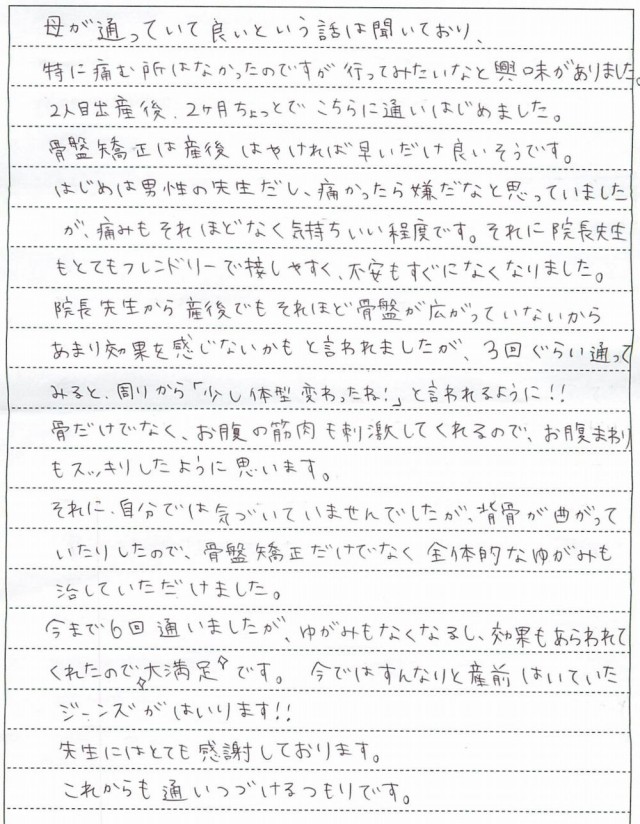 母が通っていて良いという話は聞いており、
特に痛む所はなかったのですが行ってみたいなと興味がありました。
2人目出産後、2ヶ月ちょっとでこちらに通いはじめました。
骨盤矯正は産後はやければ早いだけ良いそうです。
はじめは男性の先生だし、痛かったら嫌だなと思っていました
が、痛みもそれほどなく気持ちいい程度です。それに院長先生
もとてもフレンドリーで接しやすく、不安もすぐになくなりました。
院長先生から産後でもそれほど骨盤が広がっていないから
あまり効果を感じないかもと言われましたが、3回ぐらい通って
みると、周りから「少し体型変わったね!」と言われるように!!
骨だけでなく、お腹の筋肉も刺激してくれるので、お腹まわり
もスッキリしたように思います。
それに、自分では気づいていませんでしたが、背骨が曲がって
いたりしたので、骨盤矯正だけでなく全体的なゆがみも
治していただけました。
今まで6回通いましたが、ゆがみもなくなるし、効果もあらわれて
くれたので大満足です。 今ではすんなりと産前はいていた
ジーンズがはいります!!
先生にはとても感謝しております。
これからも通いつづけるつもりです。